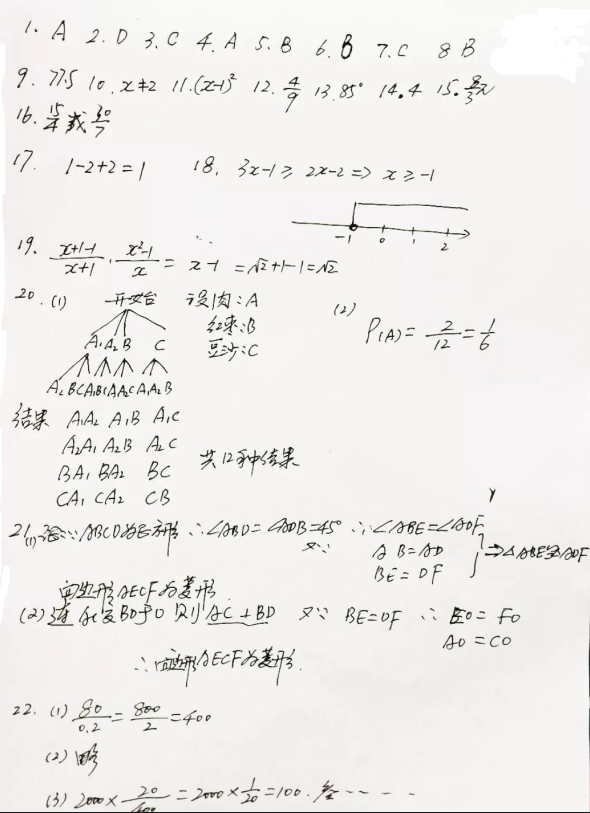 1. A 2. D 3. C 4. A 5. B 6. B 7. C 8 B
9. 77.5 10. x≠2 11. (x-1)² 12. 4/9 13. 85° 14. 4 15. 8/3π
16. 15/4 或 30/7
17. 1-2+2=1 18. 3x-1≥2x-2=> x≥-1
-1 0 1 2
19. (x+1-1)/(x+1) · (x²-1)/x = x-1 =√2+1-1=√2
20. (1) 开始 设肉:A (2)
红枣:B P(A)= 2/12 = 1/6
A₁ A₂ B C 豆沙:C
A₂ B C A₁ B C A₁ A₂ C A₁ A₂ B
结果 A₁A₂ A₁B A₁C
A₂A₁ A₂B A₂C
BA₁ BA₂ BC 共12种结果
CA₁ CA₂ CB
21. (1) ∵ ABCD为正方形 ∴∠ABD=∠ADB=45° ∴∠ABE=∠ADF
又∵ AB=AD => △ABE≌ADF
BE=DF
四边形AECF为菱形
(2) 连AC交BD于O 则AC⊥BD 又∵ BE=DF ∴ EO=FO
AO=CO
∴四边形AECF为菱形.
22. (1) 80/0.2 = 800/2 =400
(2) 略
(3) 2000× 20/400 =2000× 1/20 =100. 答----